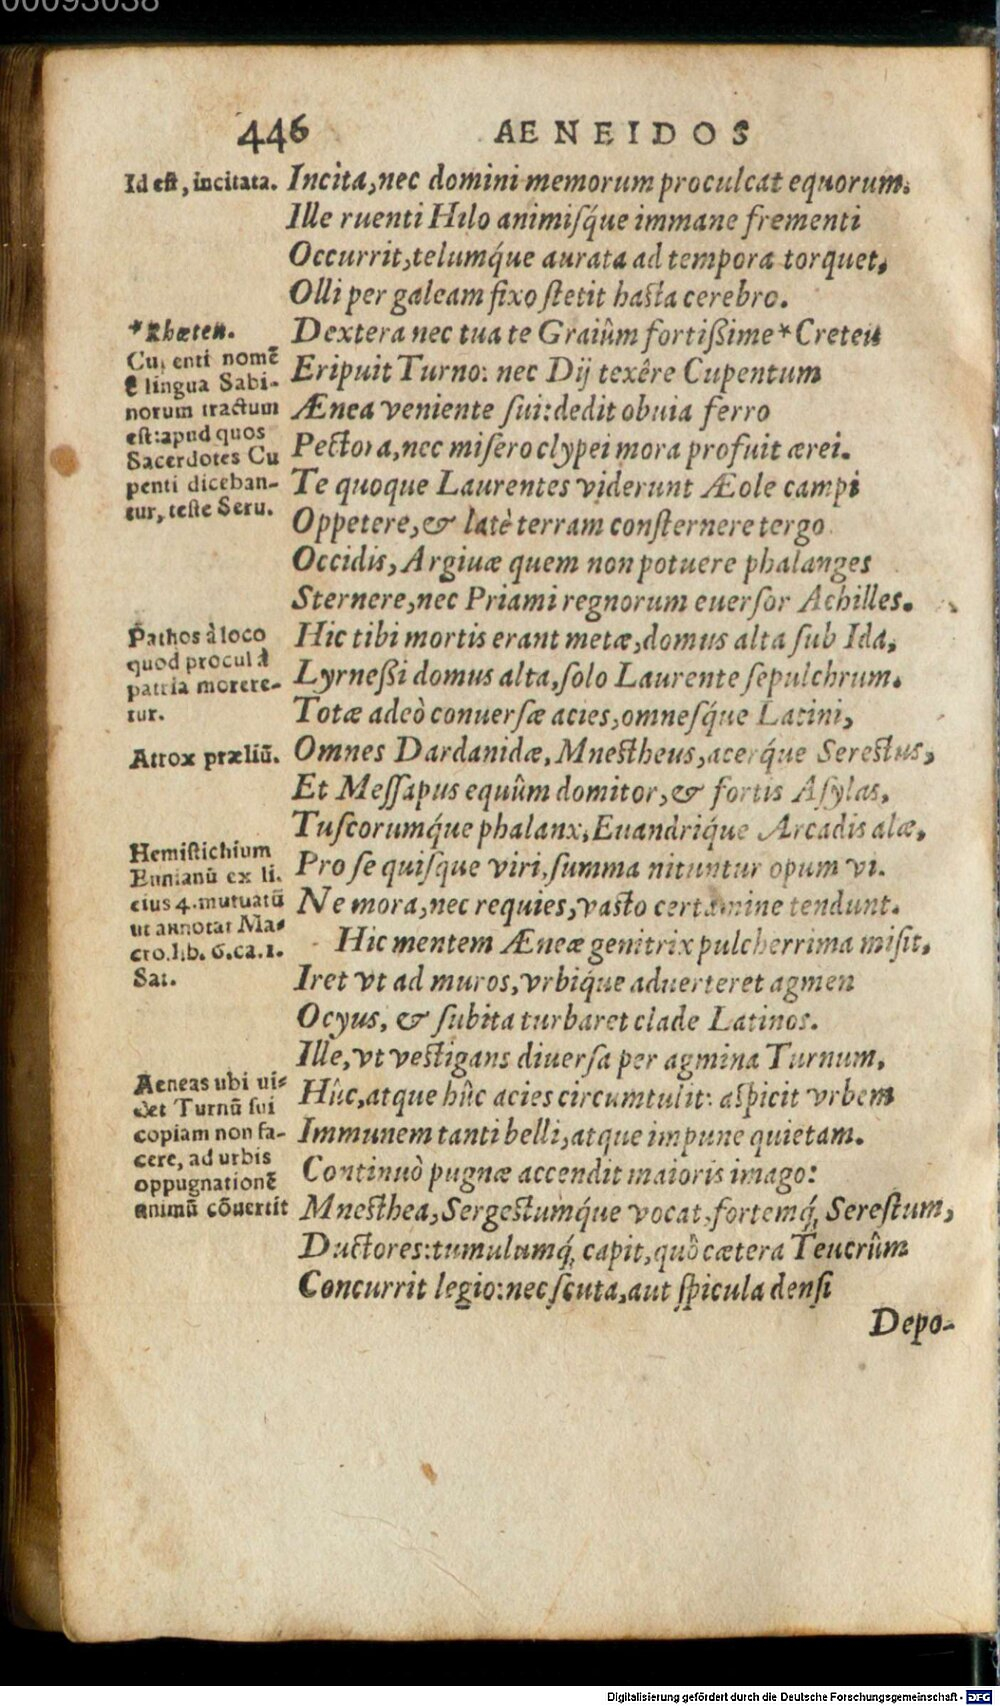 00093038
446 AENEIDOS
Id est, incitata.
Incita, nec domini memorum proculcat equorum.
Ille ruenti Hilo animisq́ue immane frementi
Occurrit, telumq́ue aurata ad tempora torquet,
Olli per galeam fixo stetit hasta cerebro.
*Rhœteu.
Dextera nec tua te Graiûm fortißime * Creteu
Cupenti nomē
Eripuit Turno: nec Dij texêre Cupentum
ē lingua Sabi-
norum tractum
Ænea veniente sui: dedit obuia ferro
est: apud quos
Pectora, nec misero clypei mora profuit ærei.
Sacerdotes Cu
penti diceban-
Te quoque Laurentes viderunt Æole campi
tur, teste Seru.
Oppetere, & latè terram consternere tergo
Occidis, Argiuæ quem non potuere phalanges
Sternere, nec Priami regnorum euersor Achilles.
Pathos à loco
Hic tibi mortis erant metæ, domus alta sub Ida,
quod procul à
patria morere-
Lyrneßi domus alta, solo Laurente sepulchrum.
tur.
Totæ adeò conuersæ acies, omnesq́ue Latini,
Atrox præliū.
Omnes Dardanidæ, Mnestheus, acerq́ue Serestus,
Et Messapus equûm domitor, & fortis Asylas,
Tuscorumq́ue phalanx, Euandriq́ue Arcadis alæ,
Hemistichium
Pro se quisque viri, summa nituntur opum vi.
Ennianū ex li.
eius 4. mutuatū
Ne mora, nec requies, vasto certamine tendunt.
ut annotat Ma-
Hic mentem Æneæ genitrix pulcherrima misit,
cro. lib. 6. ca. 1.
Sat.
Iret vt ad muros, vrbiq́ue aduerteret agmen
Ocyus, & subita turbaret clade Latinos.
Ille, vt vestigans diuersa per agmina Turnum,
Aeneas ubi ui-
Hûc, atque hûc acies circumtulit: aspicit vrbem
det Turnū sui
copiam non fa-
Immunem tanti belli, atque impune quietam.
cere, ad urbis
Continuò pugnæ accendit maioris imago:
oppugnationē
animū cōuertit
Mnesthea, Sergestumq́ue vocat, fortemq́; Serestum,
Ductores: tumulumq́; capit, quò cætera Teucrûm
Concurrit legio: nec scuta, aut spicula densi
Depo-
Digitalisierung gefördert durch die Deutsche Forschungsgemeinschaft - DFG